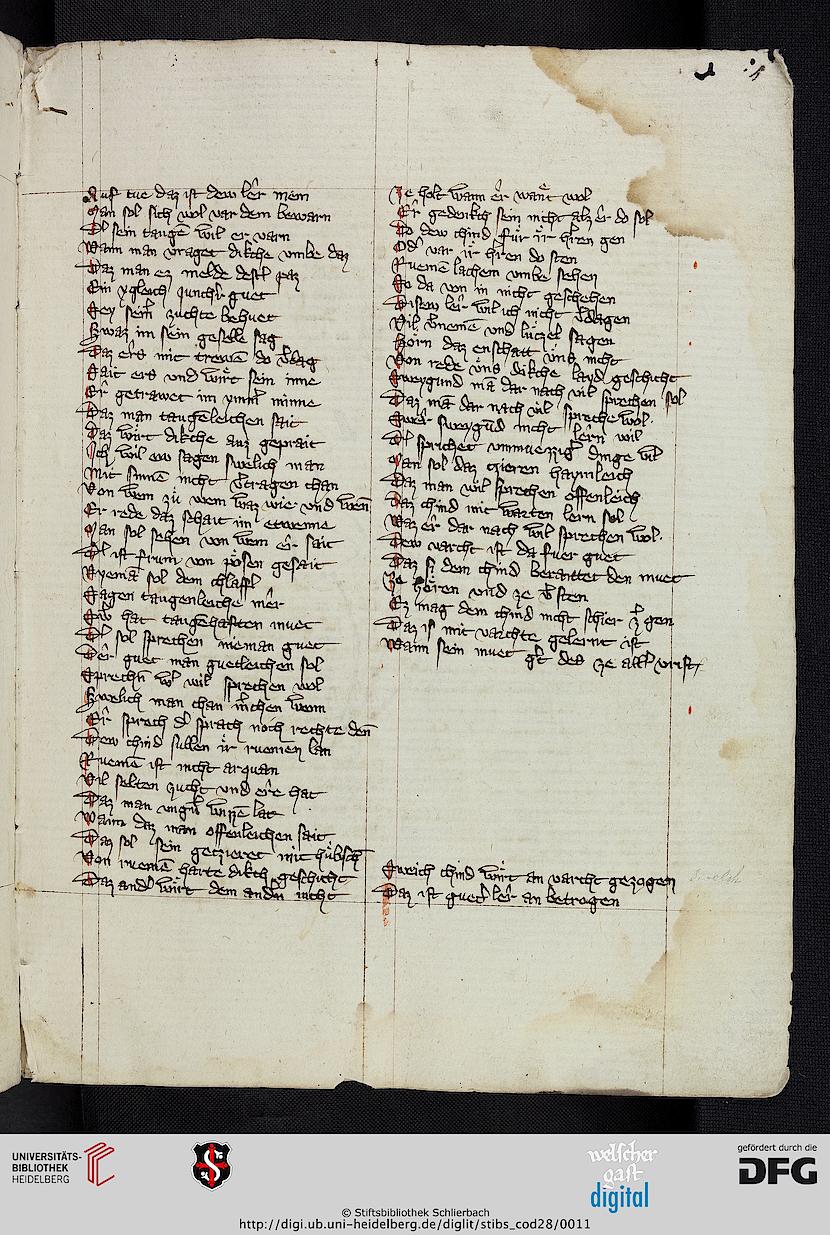 Auf tue daz ist dew ler mein
Man sol sich wol var dem bewarn
Ob sein taugē wil er varn
Wann man vraget dikche vmbe daz
Daz man ez melde dest paz
Ein ygleich junchr guet
Sey sein zuchte behuet
Swaz im sein geselle sag
Daz ers mit trewen do vdag
Sait ers vnd wirt sein inne
Er getrawet im ymm minne
Daz man taugēleichen sait
Daz wirt dikche auz geprait
Ich wil ew sagen swelich man
Mit sinne nicht vtragen chan
Von wem zü wem waz wie vnd wen
Er rede daz schait im etwenne
Man sol sehen von wem er sait
Ob ist frum von pösen gesait
Nyemā sol dem chlaffl
Sagen taugenleiche mer
Swer hat taugēhaften muet
Der sol sprechen nieman guet
Der guet man guetleichen sol
Sprechn wil sprechen wol
Swelich man chan machen wem
Er sprech sprach noch rechte den
Dew chind sullen ir ruemen lan
Ruemē ist nicht arquan
Vil selten zucht vnd ere hat
Daz man vngn wizzē lat
Wann daz man offenleichen sait
Daz sol sein gezieret mit hübsch
Von ruemē harte dikch geschicht
Daz and wirt dem andn nicht
Ze holt wann er wānt wol
Er gedenkch sein nicht alz er do sol
So dew chind für ir hren gen
Od var ir hren do sten
Ruemē lachem vmbe sehen
So da von in nicht geschehen
Disew ler wil ich nicht vdagen
Vil vnemē vnd lüczel sagen
Hörn daz enschatt vns nicht
Von rede vns dikche layd geschicht
Sweygund mā dar nach vil sprechen sol
Daz mā dar nach vil spreche wol
Swer sweygūd nicht lern wil
Ob sprichet vnmuezzig dinge vil
Man sol daz czieren haymleich
Daz man wil sprechen offenleich
Daz chind mit warten lern sol
Waz er dar nach wil sprechen wol
Dew varcht ist da fuer guet
Daz si dem chind beraittet den muet
Ze hören vnd ze vsten
Ez mag dem chind nicht schier zgen
Daz is mit varchte gelernt ist
Wann sein muet gt des ze all vrist
Sweich chind wirt an varcht gezogen
Daz ist gued ler an betrogen
UNIVERSITÄTS-
BIBLIOTHEK
HEIDELBERG
welscher
gast
digital
gefördert durch die
DFG
© Stiftsbibliothek Schlierbach
http://digi.ub.uni-heidelberg.de/diglit/stibs_cod28/0011